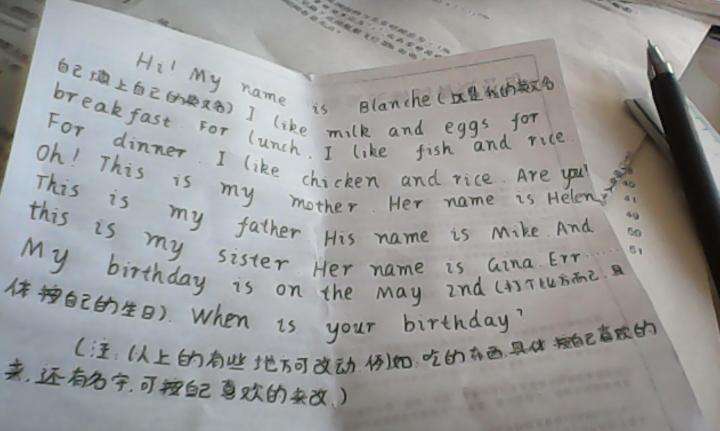 Hi! My name is Blanche (这是我的英文名
自己填上自己的英文名) I like milk and eggs for
breakfast. For lunch. I like fish and rice.
For dinner. I like chicken and rice. Are you?
Oh! This is my mother. Her name is Helen.
This is my father His name is Mike. And
this is my sister. Her name is Gina. Err......
My birthday is on the May 2nd (打个比方而已. 具
体按自己的生日). When is your birthday?
(注: 以上的有些地方可改动. 例如. 吃的东西. 具体按自己喜欢的
来. 还有名字. 可按自己喜欢的来改.)
49
50
51